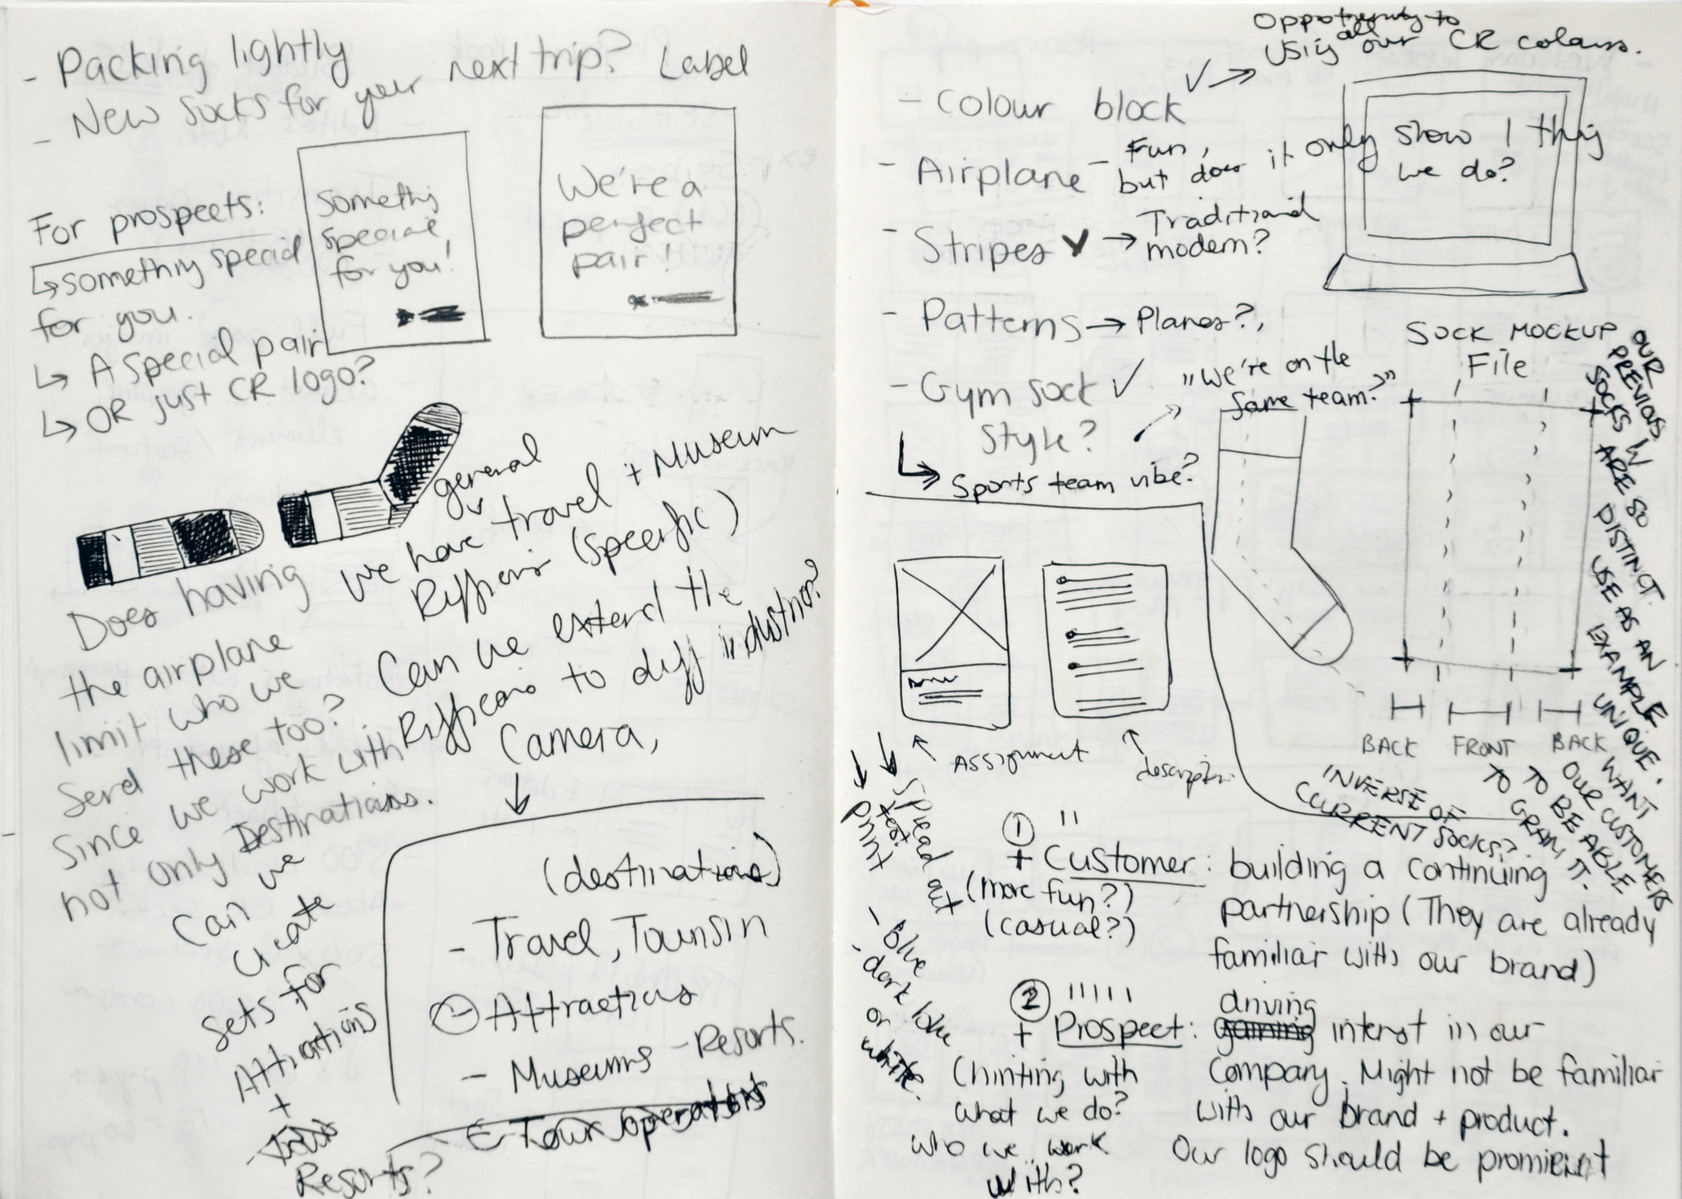 - Packing lightly
- New socks for your next trip?
Label
For prospects:
↳ something special
for you.
↳ A special pair
↳ OR just CR logo?
Somethig
special
for you!
We're a
perfect
pair!
Does having
the airplane
limit who we
send these too?
Since we work with
not only Destinations.
general
we have travel + Museum
(specific)
Can we extend the
to diff industries?
Camera,
(destinations)
- Travel, Tourism
Attractions
- Museums - Resorts.
Tour operators
Can we
create
sets for
Attractions
+
Resorts?
Opportunity to
using all our CR colours.
- Colour block ✓ →
- Airplane - Fun,
but does it only show 1 thing
we do?
- Stripes ✓ → Traditional
modern?
- Patterns → Planes?,
- Gym sock ✓
Style?
"We're on the
same team?"
↳ Sports team vibe?
SOCK MOCKUP
File
BACK FRONT BACK
INVERSE OF
CURRENT SOCKS?
OUR
PREVIOUS
SOCKS W
ARE SO
DISTINCT.
USE AS AN
EXAMPLE
UNIQUE.
WANT
OUR CUSTOMERS
TO BE ABLE
TO GRAM IT.
Assignment
print
test
spread out
- blue
- dark blue
or
white.
① "
+ Customer: building a continuing
(more fun?)
(casual?)
partnership (They are already
familiar with our brand)
②
+ Prospect: driving
interest in our
Company. Might not be familiar
with our brand + product.
Our logo should be prominent
(hinting with
what we do?
who we work
with?